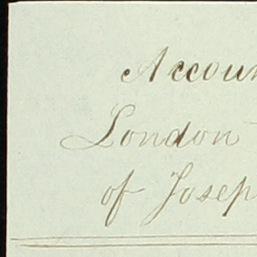 Accoun
London
of Josep